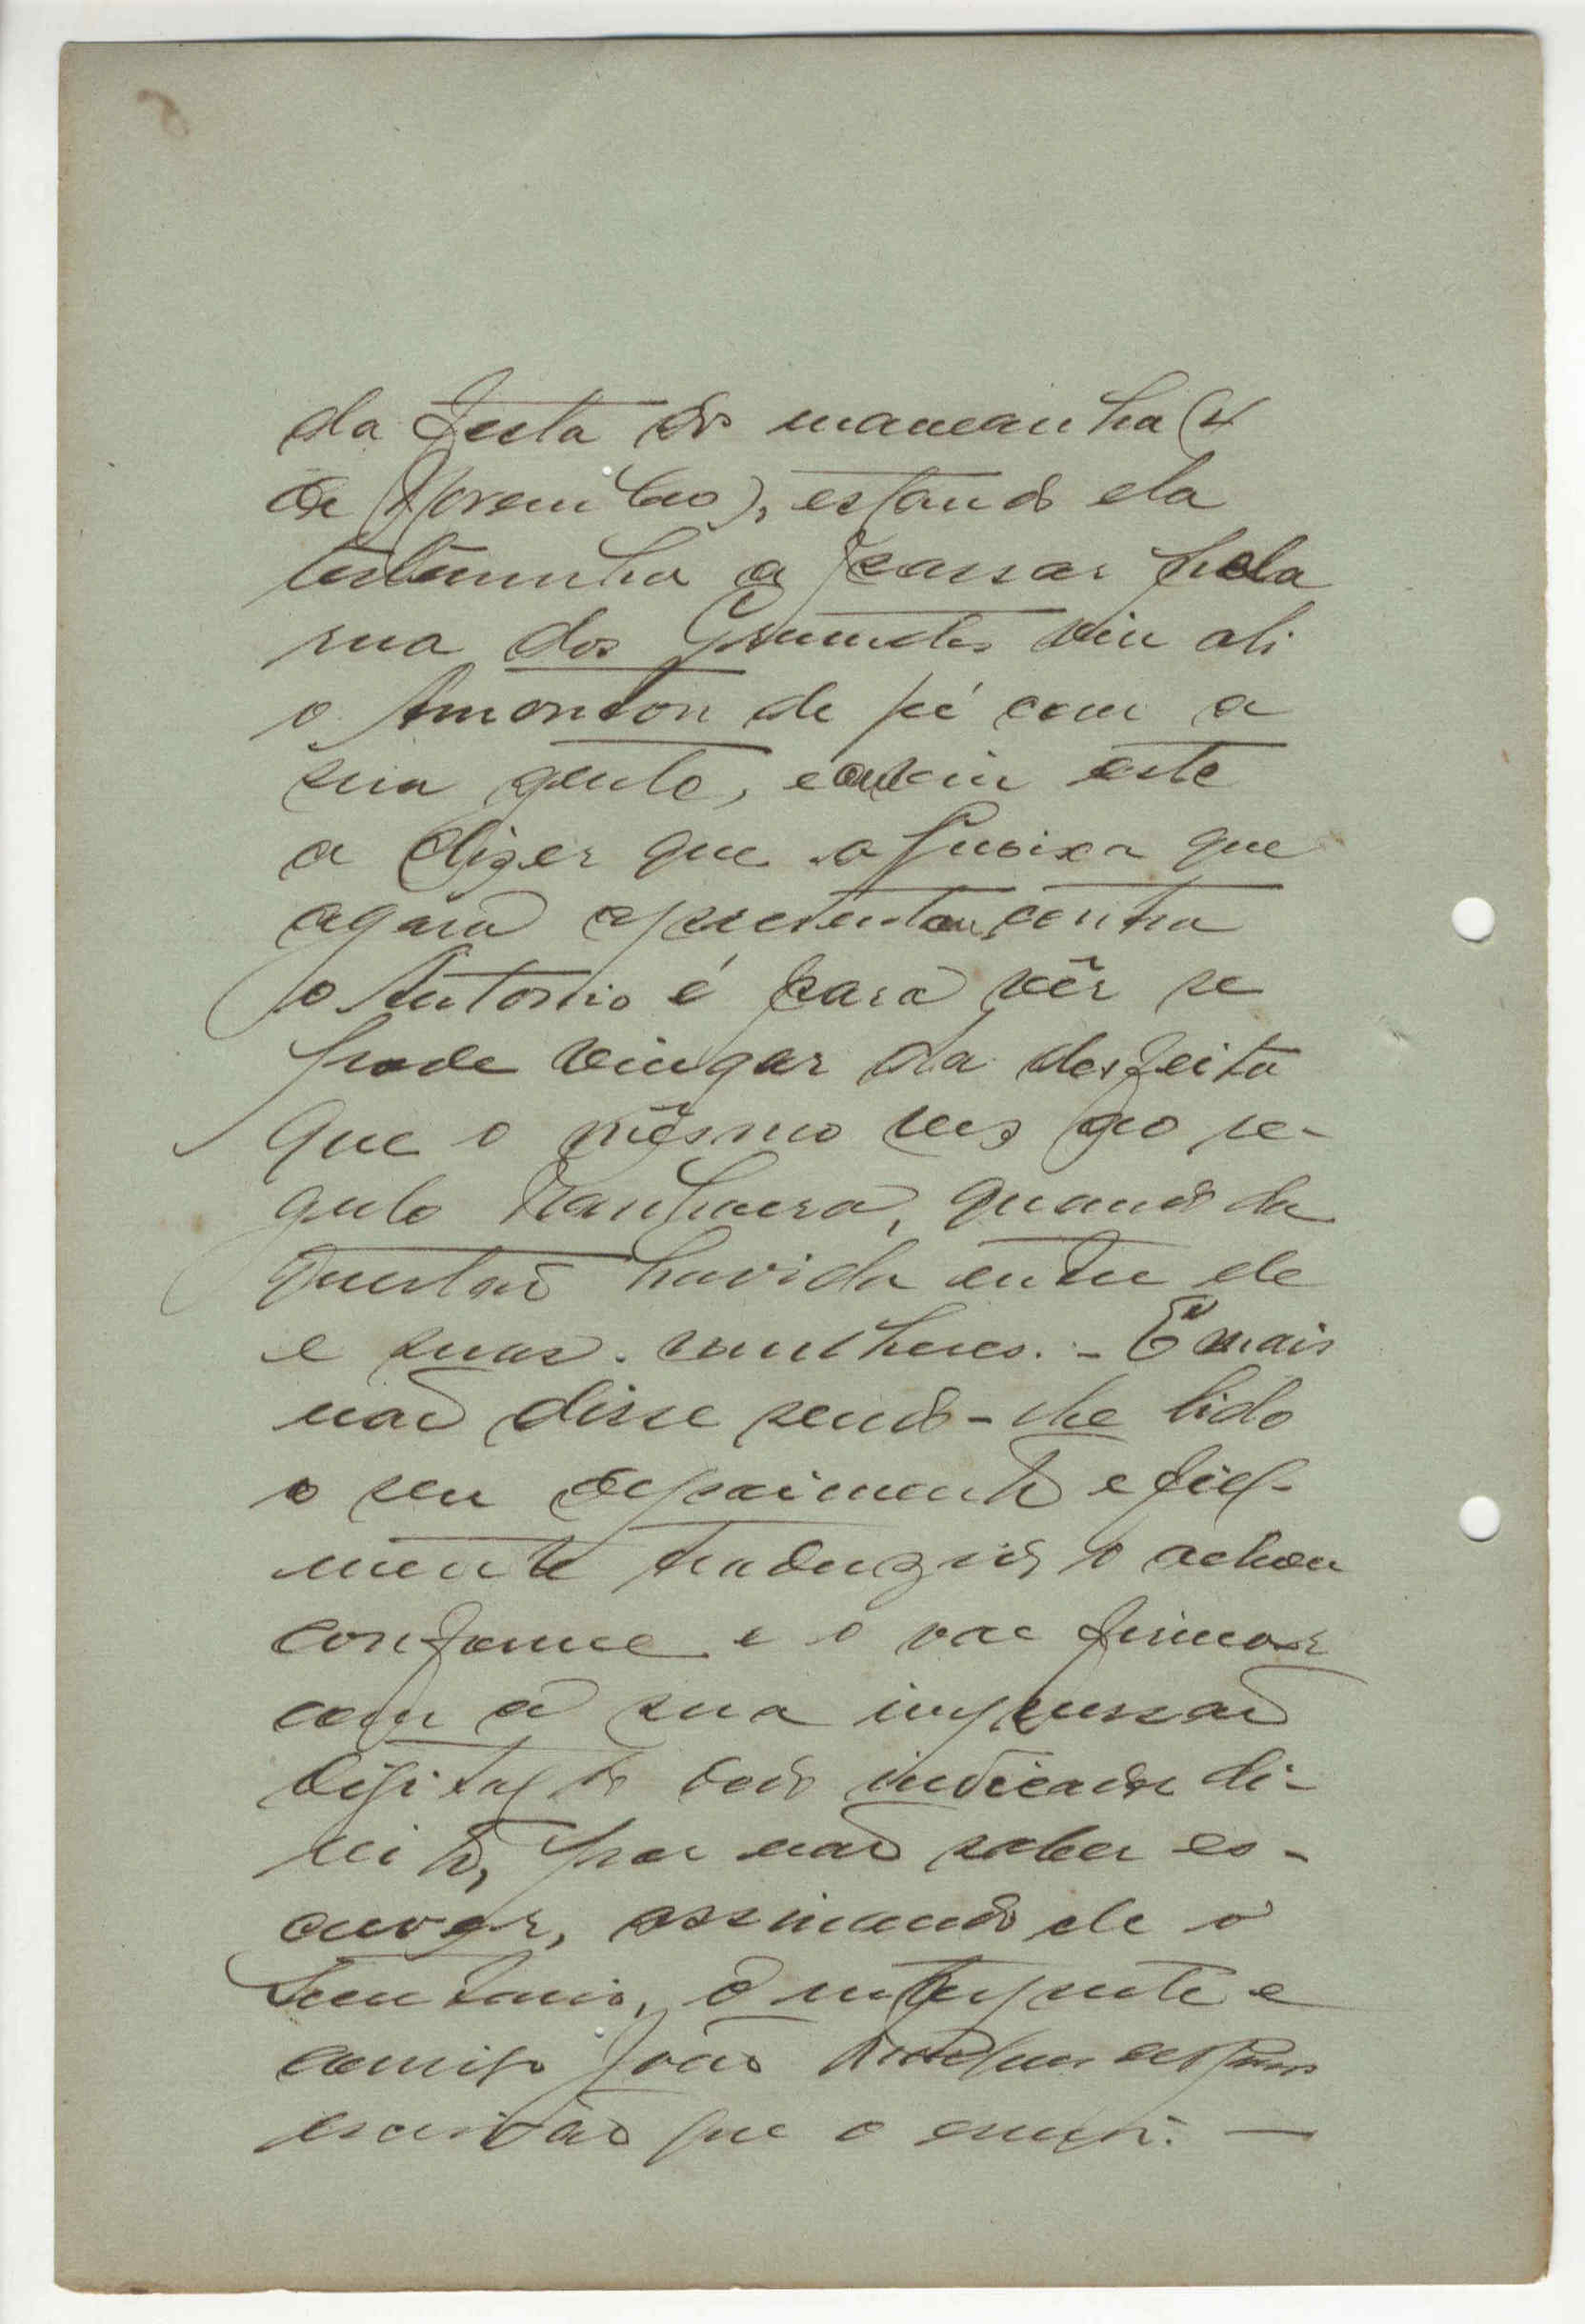 da festa do mancanha (4
de Novembro), estando ela
testemunha a passar pela
rua dos Grumetes viu ali
o Amonton de pé com a
sua gente, e ouviu este
a dizer que a queixa que
agora apresentou contra
o Antonio é para vêr se
pode vingar da desfeita
que o mêsmo fez ao re-
gulo, quando da
questão havida entre ele
e suas mulheres. - E mais
não disse sendo-lhe lido
o seu depoimento e fiel-
mente traduzido o achou
conforme e o vae firmar
com a sua impressão
digital do dedo indicador di-
reito, por não saber es-
crever, assinando ele o
, o interprete e
comigo João
escrivão que o escrevi. —